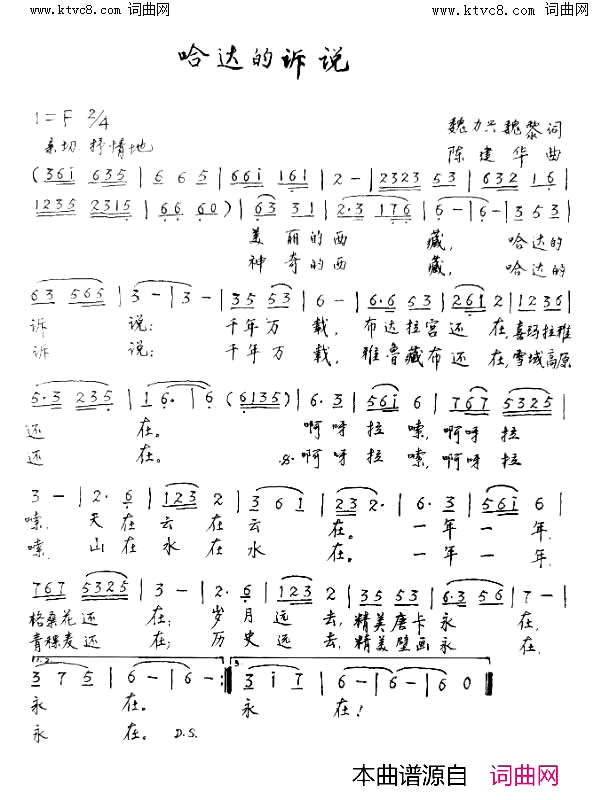 www.ktvc8.com 词曲网 www.ktvc8.com 词曲网
哈达的诉说
1=F 2/4
亲切 抒情地
魏力兴魏黎词
陈建华曲
(361 635 | 6 6 5 | 661 161 | 2 - | 2323 53 | 632 16 |
1235 2315 | 66 60) | 63 31 | 2·3 176 | 6 - | 6 - | 3 5 3 |
美丽的西 藏, 哈达的
神奇的西 藏, 哈达的
63 565 | 3 - | 3 - | 35 53 | 6 - | 6·6 53 | 261 2 | 1236 |
诉 说: 千年万 载, 布达拉宫还 在,喜玛拉雅
诉 说: 千年万 载, 雅鲁藏布还 在,雪域高原
5·3 235 | 1 6· | 6 (6135) | 6·3 | 561 6 | 767 5325 |
还 在。 啊呀拉 嗦,啊呀 拉
还 在。 .S.啊呀拉 嗦,啊呀 拉
3 - | 2·6 | 123 2 | 3 6 1 | 23 2· | 6·3 | 561 6 |
嗦, 天在云 在云 在。 一年一 年,
嗦, 山在水 在水 在。 一年一 年,
767 5325 | 3 - | 2·6 | 123 2 | 35 53 | 6·3 56 | 7 - |
格桑花还 在; 岁月远 去,精美唐卡永 在,
青稞麦还 在; 历史远 去,精美壁画永 在,
1.2. 3.
3 7 5 | 6 - | 6 - :| 3 i 7 | 6 - | 6 - | 6 0 ||
永 在。 永 在!
永 在。 D.S.
本曲谱源自 词曲网